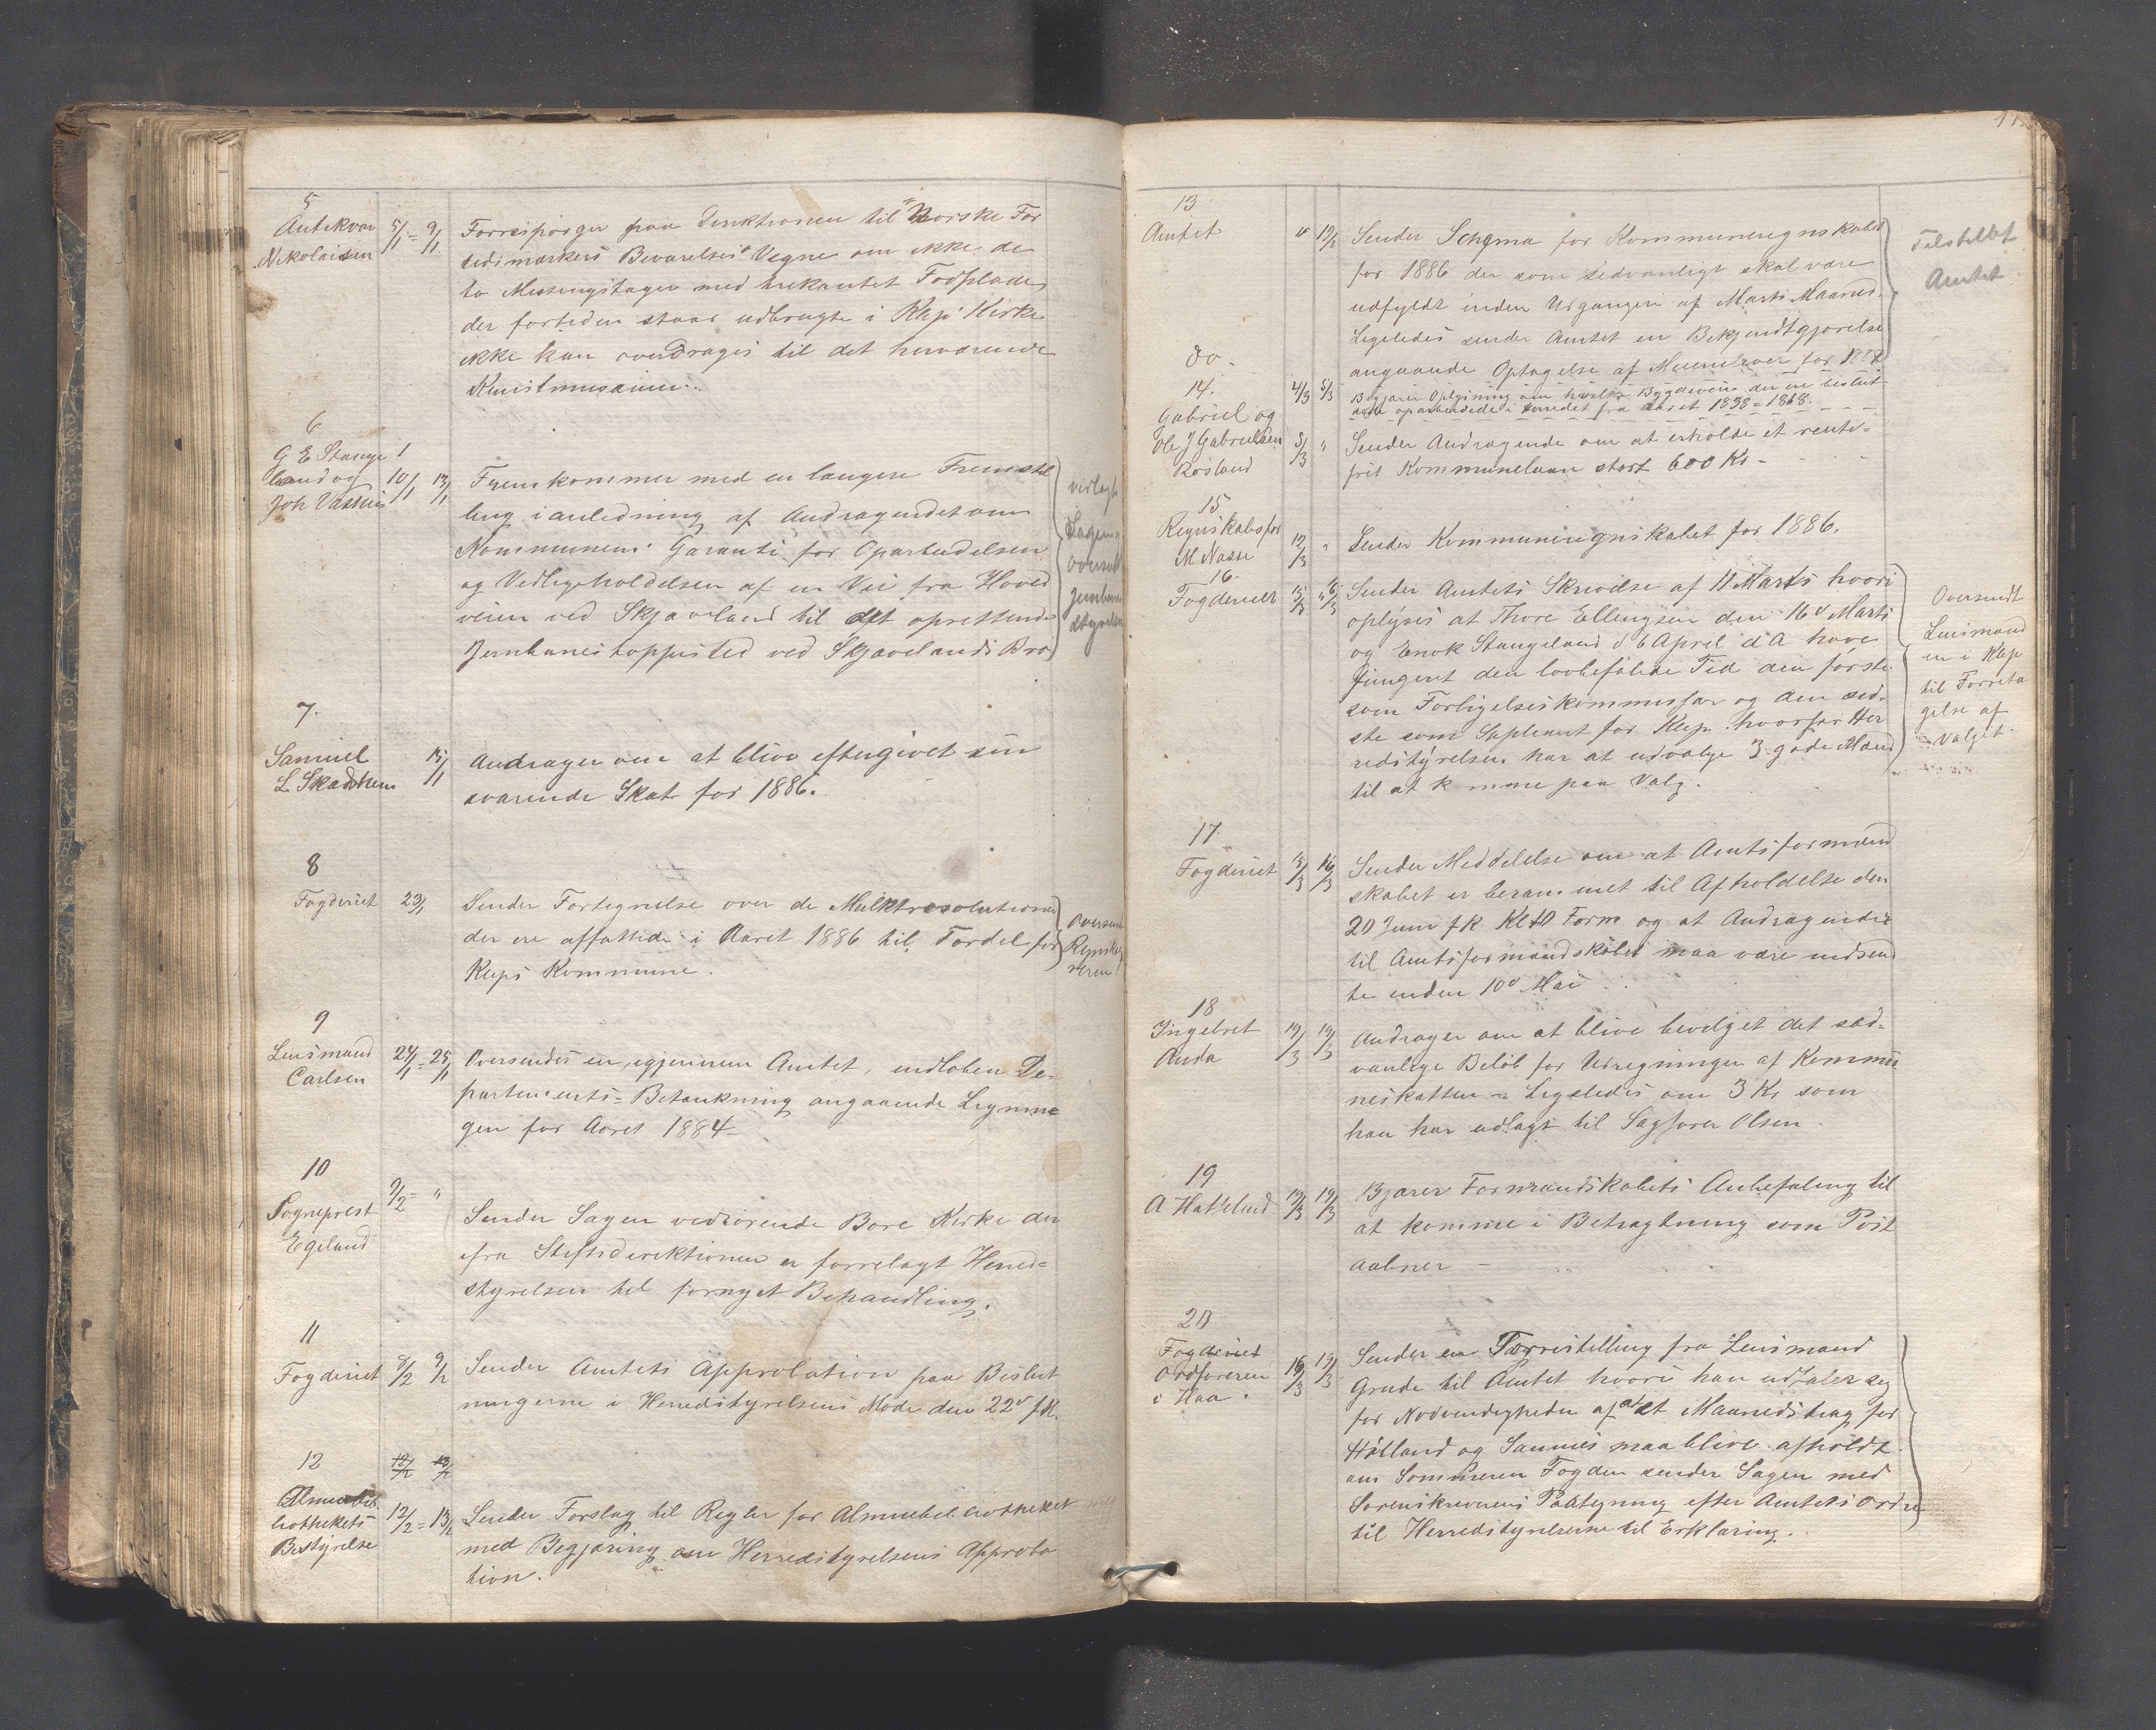 5
Antekvar
Nikolaisen
5/1 = 9/1
Forrespørger paa Direktionen til "Norske For
tidsmærkers Bevarelses" Vegne om ikke de
to Messingstager med trekantet Fodplade
der fortiden staar udbragte i Klep Kirke
ikke kan overdrages til det herværende
Kunstmusæum.
6
G E Stange
land og
Joh Vasshus
10/1 13/1
Fremkommer med en længere Fremstil
ling i anledning af Andragendet om
Kommunens Garanti for Oparbeidelsen
og Vedligeholdelsen af en Vei fra Hoved
veien ved Skjæveland til det oprettende
Jernbanestoppested ved Skjævelands Bro
vedlagt
Sagen
oversendt
Jernbane
styrelsen
7.
Samuel
L. Skadshem
15/1
Andrager om at blive eftergivet sin
svarende Skat for 1886.
8
Fogderiet
23/1
Sender Fortegnelse over de Mulktresolutioner
der ere affattede i Aaret 1886 til Fordel for
Kleps Kommune.
Oversendt
Regnskabs
føreren!
9
Lensmand
Carlsen
24/1 = 25/1
Oversendes en, igjennem Amtet, indløben De-
partements = Betænkning angaaende Lignin
gen for Aaret 1884 -
10
Sogneprest
Egeland
9/2 = "
Sender Sagen vedrørende Bore Kirke der
fra Stiftsdirektionen er forrelagt Herred=
styrelsen til fornyet Behandling.
11
Fogderiet
8/2 9/2
Sender Amtets Approbation paa Beslut
ningerne i Herredstyrelsens Møde den 22de f.M.
12
12/2 13/2
Almuebib
liothekets
Bestyrelse
12/2 = 13/2
Sender Forslag til Regler for Almuebibliotheket
med Begjæring om Herredstyrelsens Approba
tion.
13
Amtet
" 19/2
Sender Schema for Kommuneregnskabet
for 1886 der som sedvanligt skal være
udfyldt inden Udgangen af Marts Maaned.
Ligeledes sender Amtet en Bekjendtgjørelse
angaaende Optagelse af
Tilstillet
Amtet
do.
4/3 5/3
Begjærer Oplysning om hvilke Bygdeveie der ere beslut-
tede oparbeidede i Herredet fra Aaret 1838 = 1868.
14.
Gabriel og
Ole J Gabrielsen
Røsland
5/3 "
Sender Andragende om at erholde et rente-
frit Kommunelaan stort 600 Kr -
15
Regnskabsfør
M Næsse
12/3 "
Sender Kommuneregnskabet for 1886.
16.
Fogderiet
15/3 16/3
Sender Amtets Skrivelse af 11 Marts hvori
oplyses at Thore Ellingsen den 16de Marts
og Enok Stangeland d 6 April d A have
fungeret den lovbefalede Tid den første
som Forligelseskommissær og den sid-
ste som Supleant for Klep hvorfor Her
redstyrelsen har at udvælge 3 gode Mænd
til at komme paa Valg.
Oversendt
Lensmand
en i Klep
til Forreta
gelse af
Valget.
17
Fogderiet
15/3 16/3
Sender Meddelelse om at Amtsformand
skabet er berammet til Afholdelse den
20 Juni f k Kl 10 Form og at Andragender
til Amtsformandskabet maa være indsend
te inden 10de Mai
18
Ingebret
Anda
19/3 19/3
Andrager om at blive bevilget det sæd-
vanlige Beløb for Udregninger af Kommu
neskatten - Ligeledes om 3 Kr som
han har udlagt til Sagfører Olsen.
19
A Hatteland
19/3 19/3
Bjærer Formandskabets Anbefaling til
at komme i Betragtning som Post
aabner -
20
Fogderiet
Ordføreren
i Haa.
16/3 19/3
Sender en Forrestilling fra Lensmand
Grude til Amtet hvori han udtaler seg
for Nødvendigheden af at et Maanedsting for
Høiland og Sannes maa blive afholdt
om Sommeren Fogden sender Sagen med
Sorenskriverens Paategning efter Amtets ordre
til Herredstyrelserne til Erklæring.